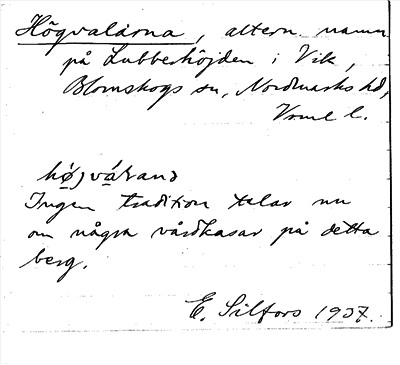 Högvalarna, altern. namn
på Lubbeshöjden i Vik,
Blomskogs sn, Nordmarks hd,
Vrml l.
hǿjvárana
Ingen tradition talar nu
om några vårdkasar på detta
berg.
E. Silfors 1937.